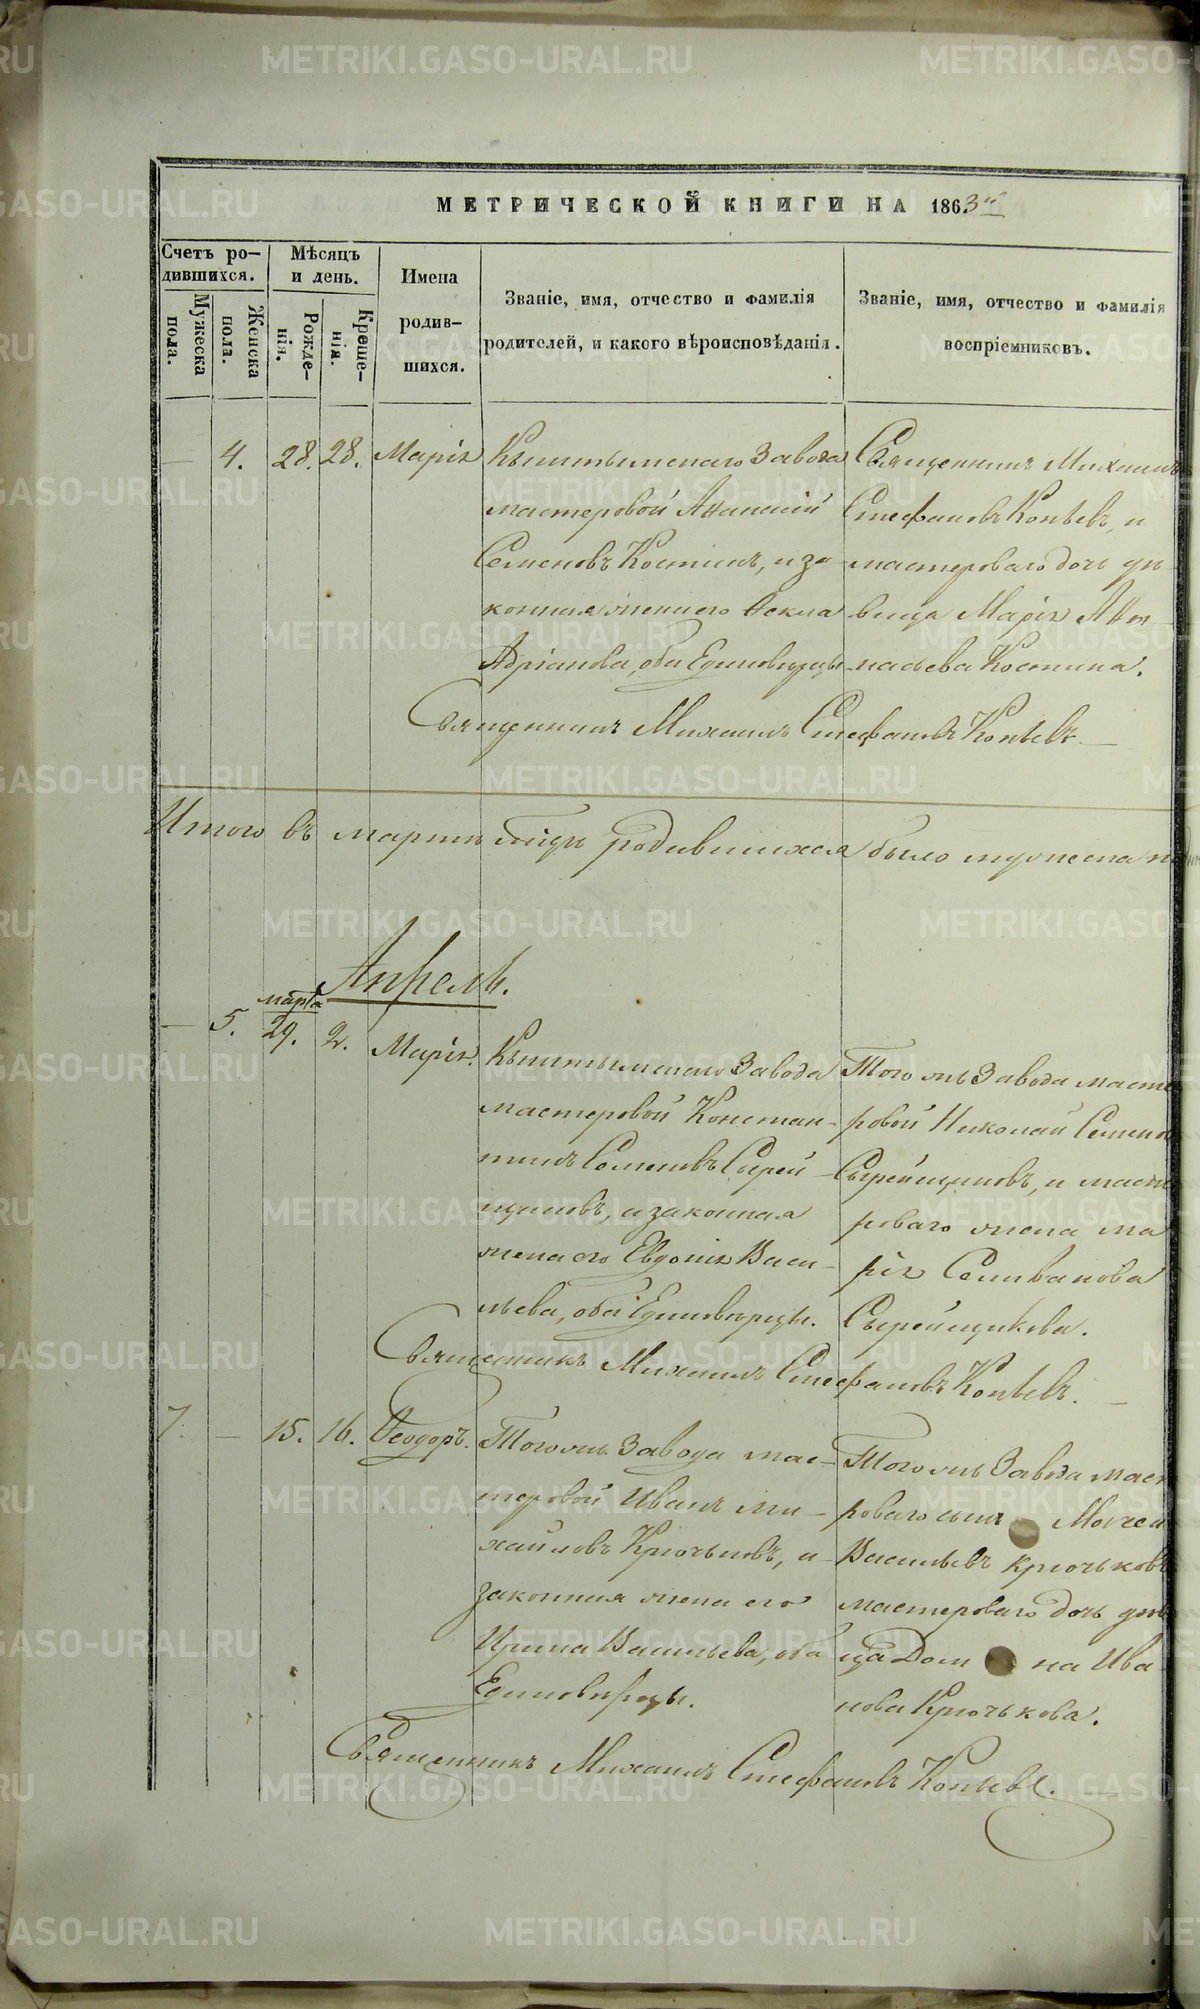 МЕТРИЧЕСКОЙ КНИГИ НА 1863й
Счетъ ро-
дившихся.
Мѣсяцъ
и день.
Имена
родив-
шихся.
Званіе, имя, отчество и фамилія
родителей, и какого вѣроисповѣданія.
Званіе, имя, отчество и фамилія
воспріемниковъ.
Мужеска
пола.
Женска
пола.
Рожде-
нія.
Креще-
нія.
— 4. 28. 28. Марія
Кыштымскаго Завода
мастеровой Афанасій
Семеновъ Костинъ, и за-
конная жена его Ѳекла
Адріанова, оба Единовѣрцы
Священникъ Михаилъ
Стефановъ Копьевъ, и
мастероваго дочь дѣ-
вица Марія Афа-
насьева Костина.
Священникъ Михаилъ Стефановъ Копьевъ. —
Итого въ мартѣ м͠цѣ родившихся было мужеска
Апрѣль.
— 5. марта 29. 2. Марія.
Кыштымскаго Завода
мастеровой Констан-
тинъ Семеновъ Сырей-
щиковъ, и законная
жена его Евдокія Васи-
льева, оба Единовѣрцы.
Того жъ Завода масте
ровой Николай Семенов
Сырейщиковъ, и масте
роваго жена Ма
рія Селиванова
Сырейщикова.
Священникъ Михаилъ Стефановъ Копьевъ. —
7. — 15. 16. Ѳеодоръ.
Того жъ Завода мас-
теровой Иванъ Ми-
хайловъ Крючьковъ, и
законная жена его
Ирина Васильева, оба
Единовѣрцы.
Того жъ Завода масте
роваго сынъ Моисей
Васильевъ Крючьковъ
мастероваго дочь дѣв
ица Дом на Ива-
нова Крючькова.
Священникъ Михаилъ Стефановъ Копьевъ.
METRIKI.GASO-URAL.RU